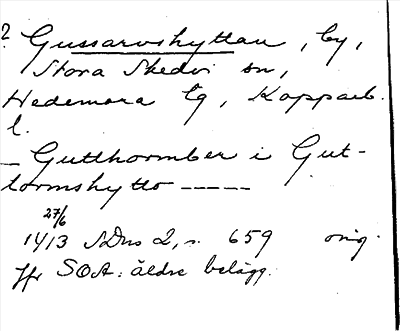 ? Gussarvshyttan, by,
Stora Skedvi sn,
Hedemora tg, Kopparb.
l.
— Gutthormber i Gut-
tormshytto -----
27/6
1413 SDns 2, s. 659 orig.
Jfr SOA: äldre belägg.